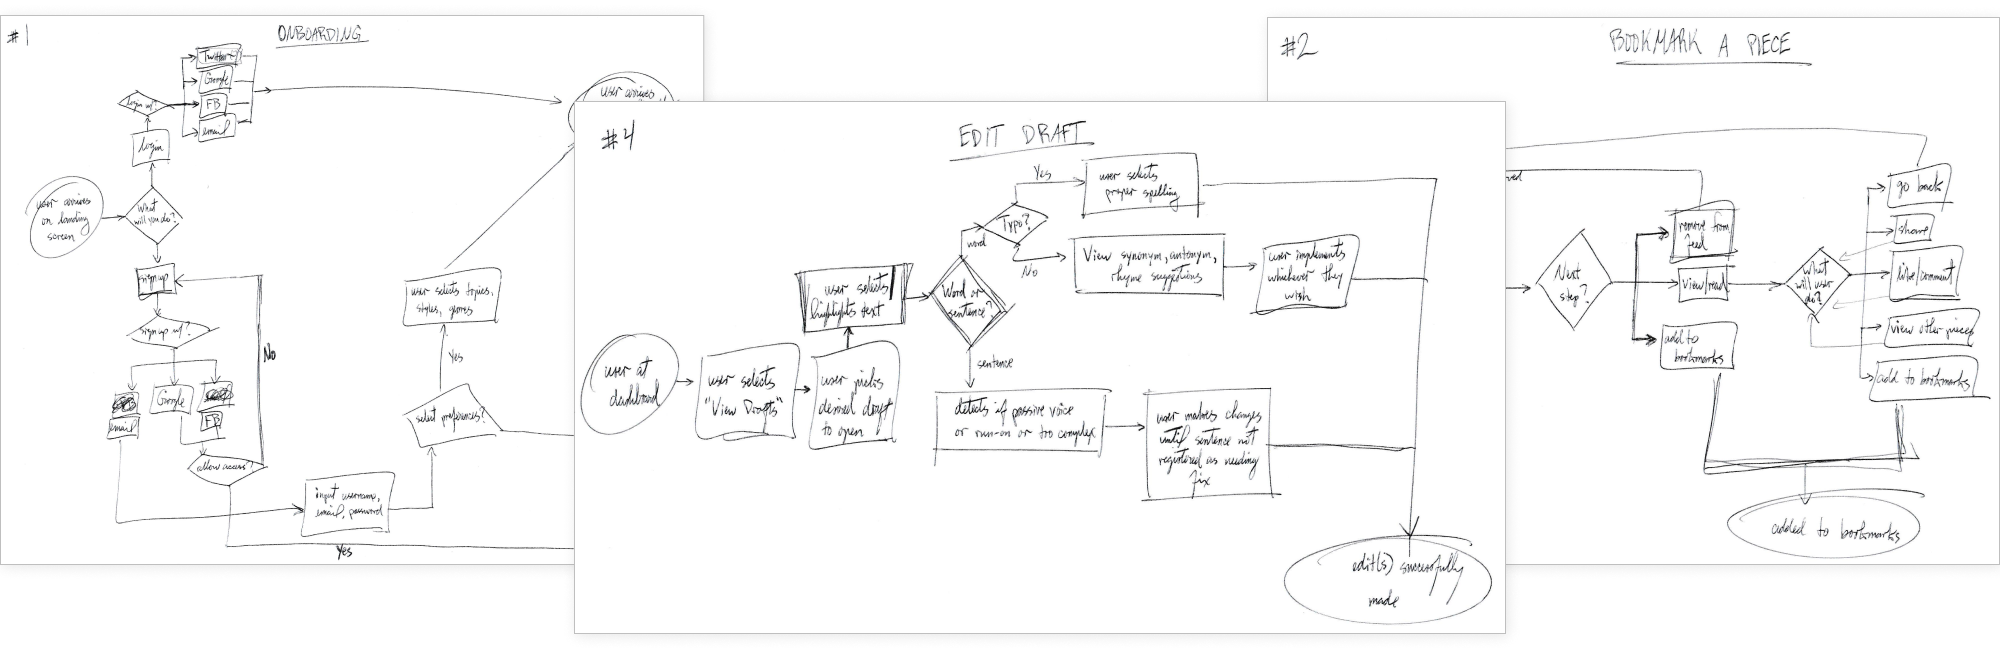 #1
ONBOARDING
Twitter
Google
FB
email
login w/?
login
user arrives
on landing
screen
What
will you do?
sign up
sign up w/?
Google
email
FB
allow access?
No
Yes
input username,
email, password
select preferences?
Yes
user selects topics,
styles, genres
user arrives
#4
EDIT DRAFT
user at
dashboard
user selects
"View Drafts"
user picks
desired draft
to open
user selects/
highlights text
Word or
sentence?
word
Typo?
Yes
user selects
proper spelling
No
View synonym, antonym,
rhyme suggestions
user implements
whichever they
wish
sentence
detects if passive voice
or run-on or too complex
user makes changes
until sentence not
registered as needing
fix
edit(s) successfully
made
#2
BOOKMARK A PIECE
ved
Next
step?
remove from
feed
view/read
add to
bookmarks
What
will user
do?
go back
share
like/comment
view other pieces
add to bookmarks
added to bookmarks